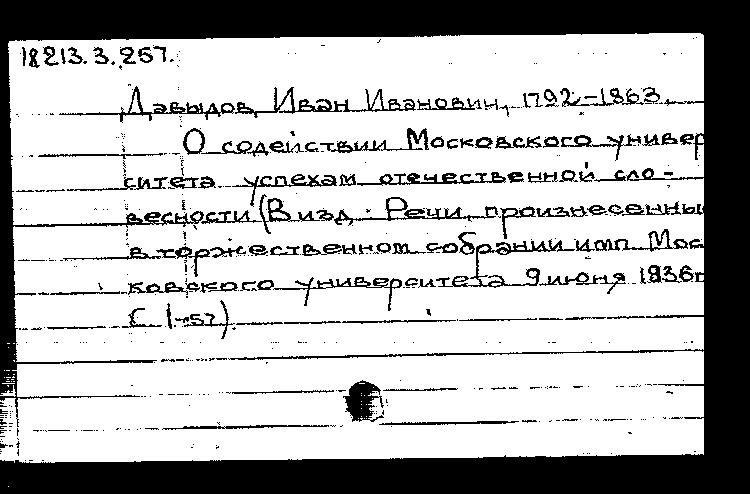 18213.3.257.
Давыдов, Иван Иванович, 1792-1863.
О содействии Московского универ
ситета успехам отечественной сло-
весности (В изд.: Речи, произнесенны
в торжественном собрании имп. Мос
ковского университета 9 июня 1836г
С. 1-57).